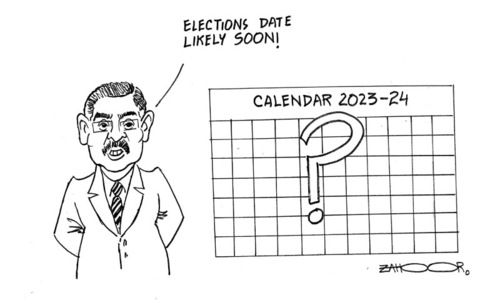 ELECTIONS DATE
LIKELY SOON!
CALENDAR 2023-24
?
ZAHOOR.